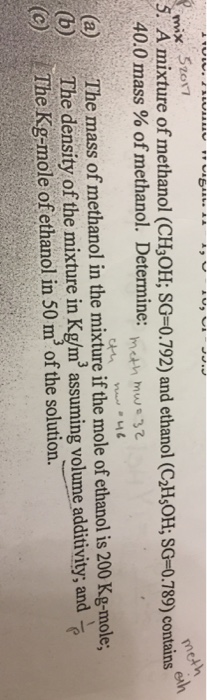 mix
5. A mixture of methanol (CH3OH; SG=0.792) and ethanol (C2H5OH; SG=0.789) contains
meth
eth
40.0 mass % of methanol. Determine: meth mw=32
eth mw=46
(a) The mass of methanol in the mixture if the mole of ethanol is 200 Kg-mole;
(b) The density of the mixture in Kg/m3 assuming volume additivity; and 1/ρ
(c) The Kg-mole of ethanol in 50 m3 of the solution.